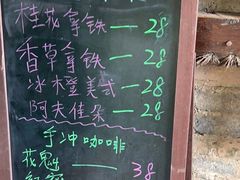 桂花拿铁—28
香草拿铁—28
冰橙美式—28
阿夫佳朵—28
手冲咖啡
花魁——38